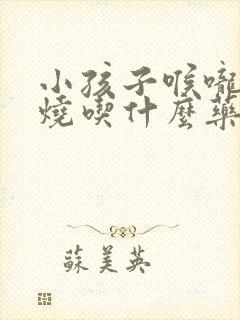 小孩子喉嚨
燒喫什麼藥
蘇美英